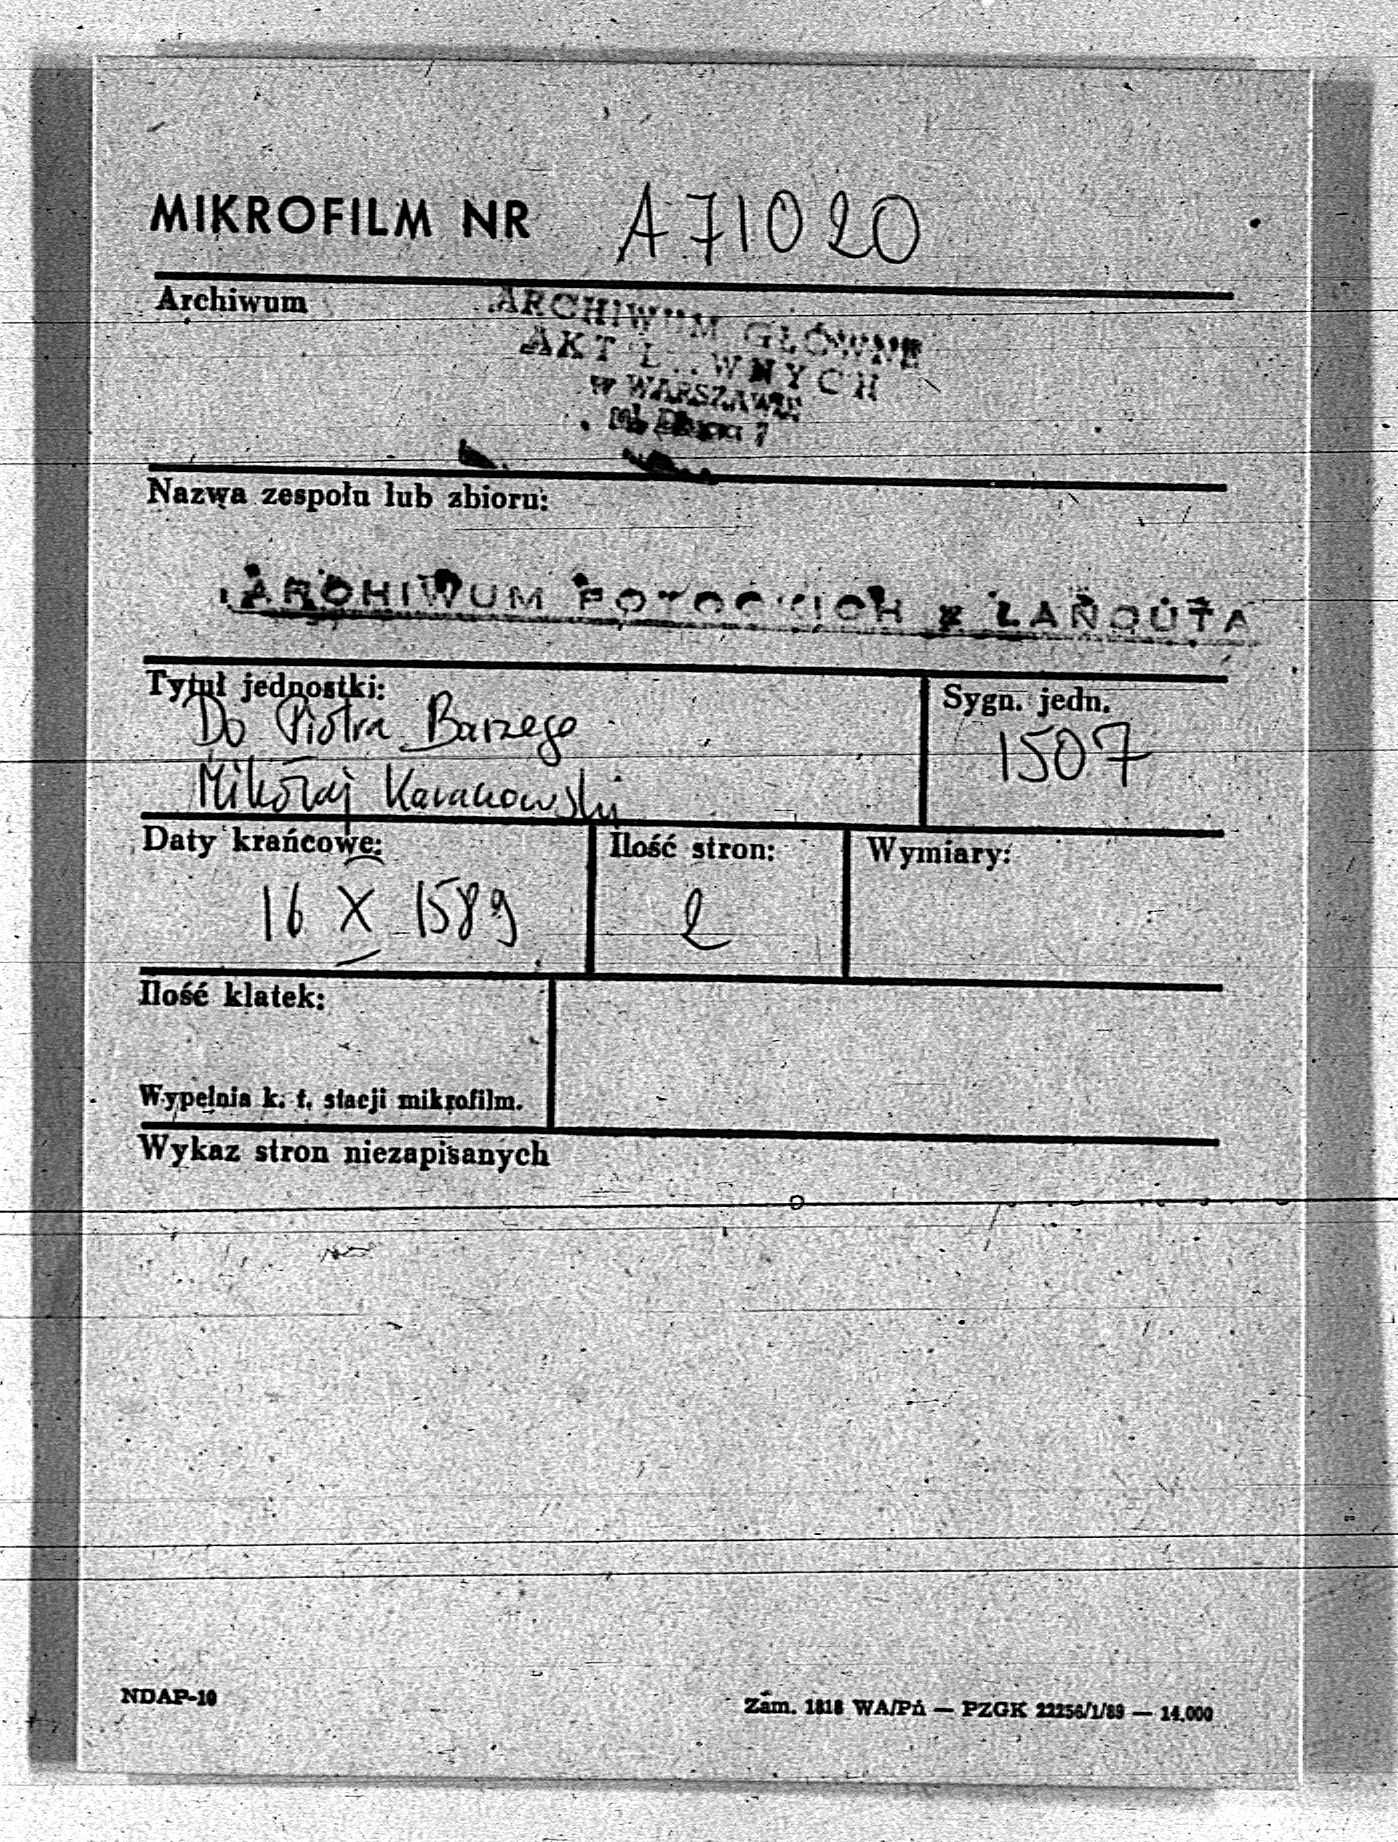 MIKROFILM NR A 71020
Archiwum
ARCHIWUM GŁÓWNE
AKT WNYCH
w WARSZAWIE
ul. Długa 7
Nazwa zespołu lub zbioru:
ARCHIWUM POTOCKICH z ŁAŃCUTA
Tytuł jednostki:
Do Piotra Barzego
Mikołaj
Sygn. jedn.
1507
Daty krańcowe:
16 X 1589
Ilość stron:
2
Wymiary:
Ilość klatek:
Wypełnia k. f. stacji mikrofilm.
Wykaz stron niezapisanych
NDAP-10
Zam. 1818 WA/Pń — PZGK 22256/1/89 — 14.000